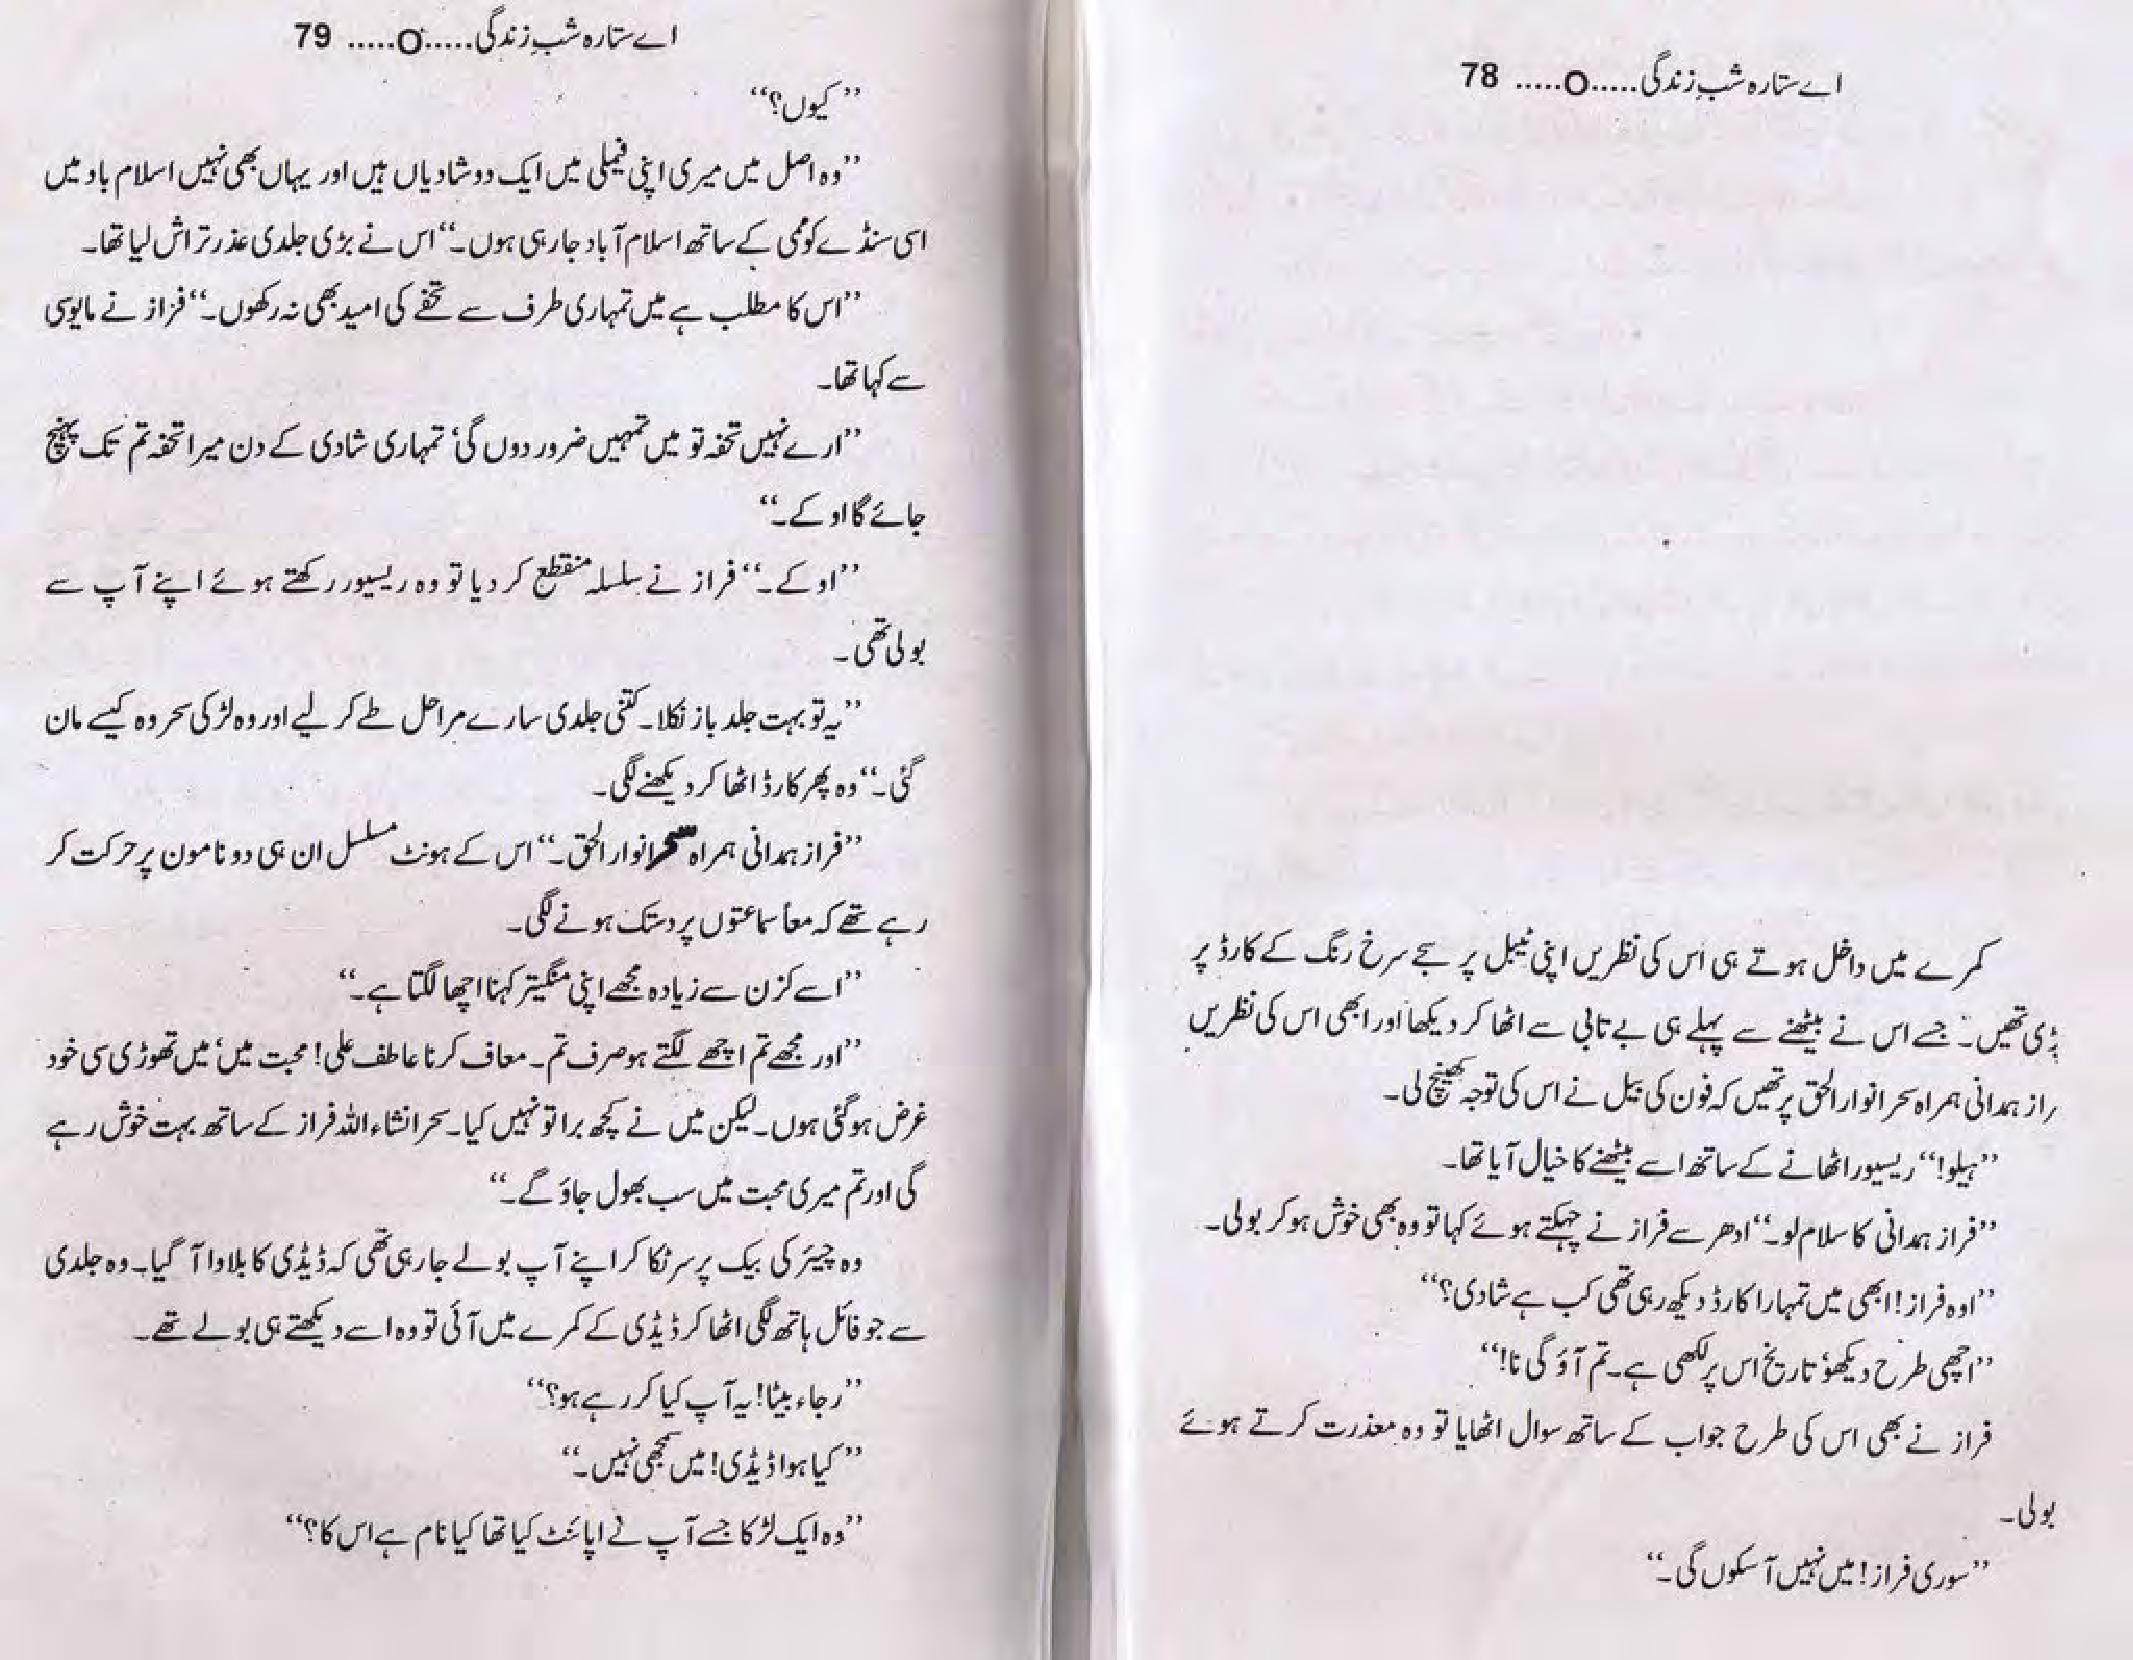 اے ستارہ شبِ زندگی.....O..... 78
کمرے میں داخل ہوتے ہی اس کی نظریں اپنی ٹیبل پر سجے سرخ رنگ کے کارڈ پر
پڑی تھیں۔ جسے اس نے بیٹھنے سے پہلے ہی بے تابی سے اٹھا کر دیکھا اور ابھی اس کی نظریں
راز ہمدانی ہمراہ سحر انوار الحق پر تھیں کہ فون کی بیل نے اس کی توجہ کھینچ لی۔
”ہیلو!“ ریسیور اٹھانے کے ساتھ اسے بیٹھنے کا خیال آیا تھا۔
”فراز ہمدانی کا سلام لو۔“ ادھر سے فراز نے چہکتے ہوئے کہا تو وہ بھی خوش ہو کر بولی۔
”اوہ فراز! ابھی میں تمہارا کارڈ دیکھ رہی تھی کب ہے شادی؟“
”اچھی طرح دیکھو‘ تاریخ اس پر لکھی ہے۔ تم آؤ گی نا!“
فراز نے بھی اس کی طرح جواب کے ساتھ سوال اٹھایا تو وہ معذرت کرتے ہوئے
بولی۔
”سوری فراز! میں نہیں آ سکوں گی۔“
اے ستارہ شبِ زندگی.....O..... 79
”کیوں؟“
”وہ اصل میں میری اپنی فیملی میں ایک دو شادیاں ہیں اور یہاں بھی نہیں اسلام باد میں
اسی سنڈے کو ممی کے ساتھ اسلام آباد جا رہی ہوں۔“ اس نے بڑی جلدی عذر تراش لیا تھا۔
”اس کا مطلب ہے میں تمہاری طرف سے تحفے کی امید بھی نہ رکھوں۔“ فراز نے مایوسی
سے کہا تھا۔
”ارے نہیں تحفہ تو میں تمہیں ضرور دوں گی‘ تمہاری شادی کے دن میرا تحفہ تم تک پہنچ
جائے گا اوکے۔“
”اوکے۔“ فراز نے سلسلہ منقطع کر دیا تو وہ ریسیور رکھتے ہوئے اپنے آپ سے
بولی تھی۔
”یہ تو بہت جلد باز نکلا۔ کتنی جلدی سارے مراحل طے کر لیے اور وہ لڑکی سحر وہ کیسے مان
گئی۔“ وہ پھر کارڈ اٹھا کر دیکھنے لگی۔
”فراز ہمدانی ہمراہ سحر انوار الحق۔“ اس کے ہونٹ مسلسل ان ہی دو ناموں پر حرکت کر
رہے تھے کہ معاً سماعتوں پر دستک ہونے لگی۔
”اسے کزن سے زیادہ مجھے اپنی منگیتر کہنا اچھا لگتا ہے۔“
”اور مجھے تم اچھے لگتے ہو صرف تم۔ معاف کرنا عاطف علی! محبت میں‘ میں تھوڑی سی خود
غرض ہو گئی ہوں۔ لیکن میں نے کچھ برا تو نہیں کیا۔ سحر انشاء اللہ فراز کے ساتھ بہت خوش رہے
گی اور تم میری محبت میں سب بھول جاؤ گے۔“
وہ چیئر کی بیک پر سر ٹکا کر اپنے آپ بولے جا رہی تھی کہ ڈیڈی کا بلاوا آ گیا۔ وہ جلدی
سے جو فائل ہاتھ لگی اٹھا کر ڈیڈی کے کمرے میں آئی تو وہ اسے دیکھتے ہی بولے تھے۔
”رجاء بیٹا! یہ آپ کیا کر رہے ہو؟“
”کیا ہوا ڈیڈی! میں سمجھی نہیں۔“
”وہ ایک لڑکا جسے آپ نے اپائنٹ کیا تھا کیا نام ہے اس کا؟“